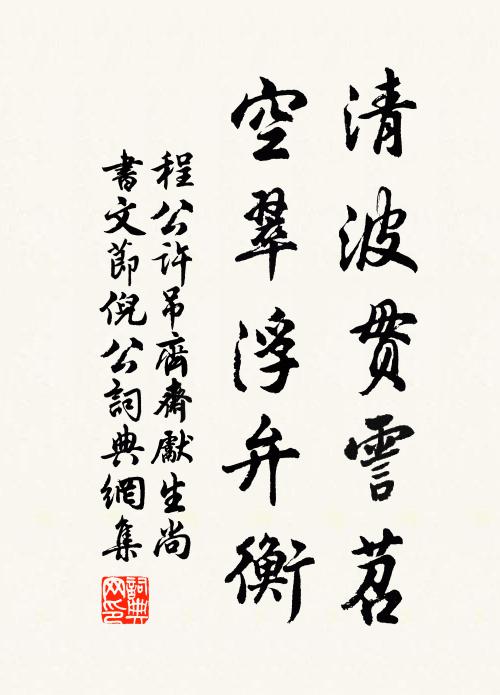 清波貫霅苕
空翠浮弁衡
程公許吊齊齋獻生尚
書文節倪公詞典網集
詞典
网印